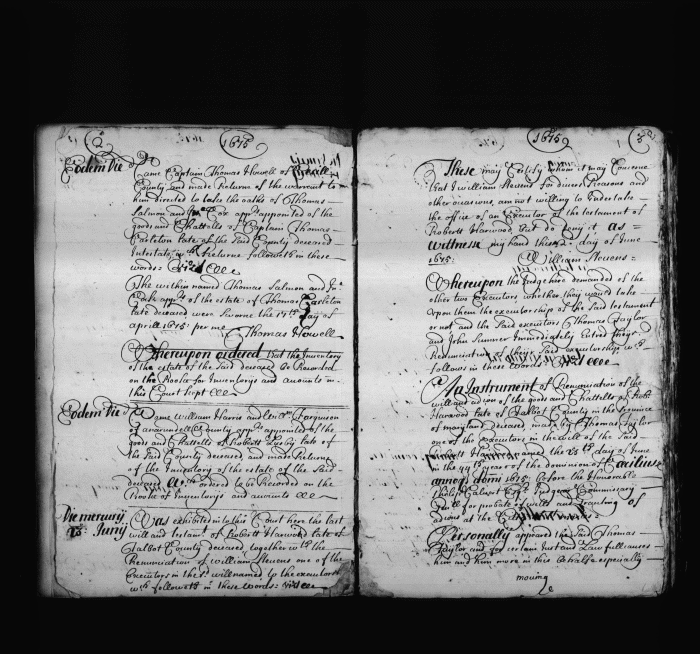 2
1675
Eodem Die
Came Captain Thomas Howell of
County and made Returne of the warrent to
him directed to take the oathes of Thomas
Salmon and Jno Cox appraisrs appointed of the
goods and Chattells of Captain Thomas
Carleton late of the said County deceased
Intestate wch Returne followeth in these
words:
The within named Thomas Salmon and Jno
Cox apprs of the estate of Thomas Carleton
late deceased were sworne the 17th day of
aprill 1675 per me
Thomas Howell
Whereupon ordered that the Inventory
of the estate of the said deceased be Recorded
on the Booke for Inventorys and accounts in
this Court kept
Eodem Die
Came William Harris and Ferguson
of County appointed of the
goods and Chattells of Robert late of
the said County deceased and made Returne
of the Inventory of the estate of the said
deceased ordered to be Recorded on the
Booke of Inventorys and accounts
Die mercury
Juny
Was exhibited into this Court here the last
will and Testamt of Robertt Harwood late of
Talbot County deceased together wth the
Renunciation of William Stevens one of the
Executors in the sd will named to the executorsp
wch followeth in these words:
1675
3
These may Certify whom it may Concerne
that I William Stevens for divers Reasons and
other occasions, am not willing to Undertake
the office of an Executor of the testament of
Robertt Harwood but do deny it, as
wittness my hand these day of June
1675.
William Stevens
Whereupon the Judge here demanded of the
other two Executors whether they would take
upon them the executorship of the said testament
or not and the said executors Thomas Taylor
and John Sumner Immediately Entred theyr
Renunciation to the said executorship wch
follows in these words
An Instrument of Renunciation of the
will and of the goods and Chattells of Robt
Harwood late of Talbot County in the Province
of maryland deceased, made by Thomas Taylor
one of the executors in the will of the said
Robertt Harwood named the day of June
in the 44th yeare of the dominion of Caecilius
annoq domi 1675. before the Honorable
Philip Calvert Esqr Judge or Commissary
Genll for probate of wills and granting of
at the City
Personally appeared the said Thomas
Taylor and for certain Just and Lawfull causes
him and him more in this behalfe especially
moving